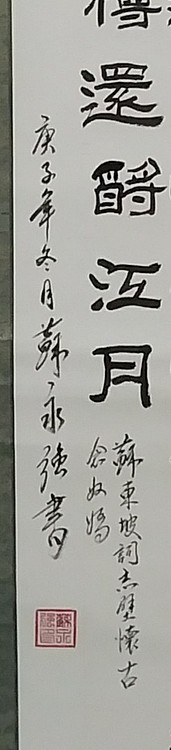 樽還酹江月
蘇東坡詞赤壁懷古
念奴嬌
庚子年冬月蘇永強書